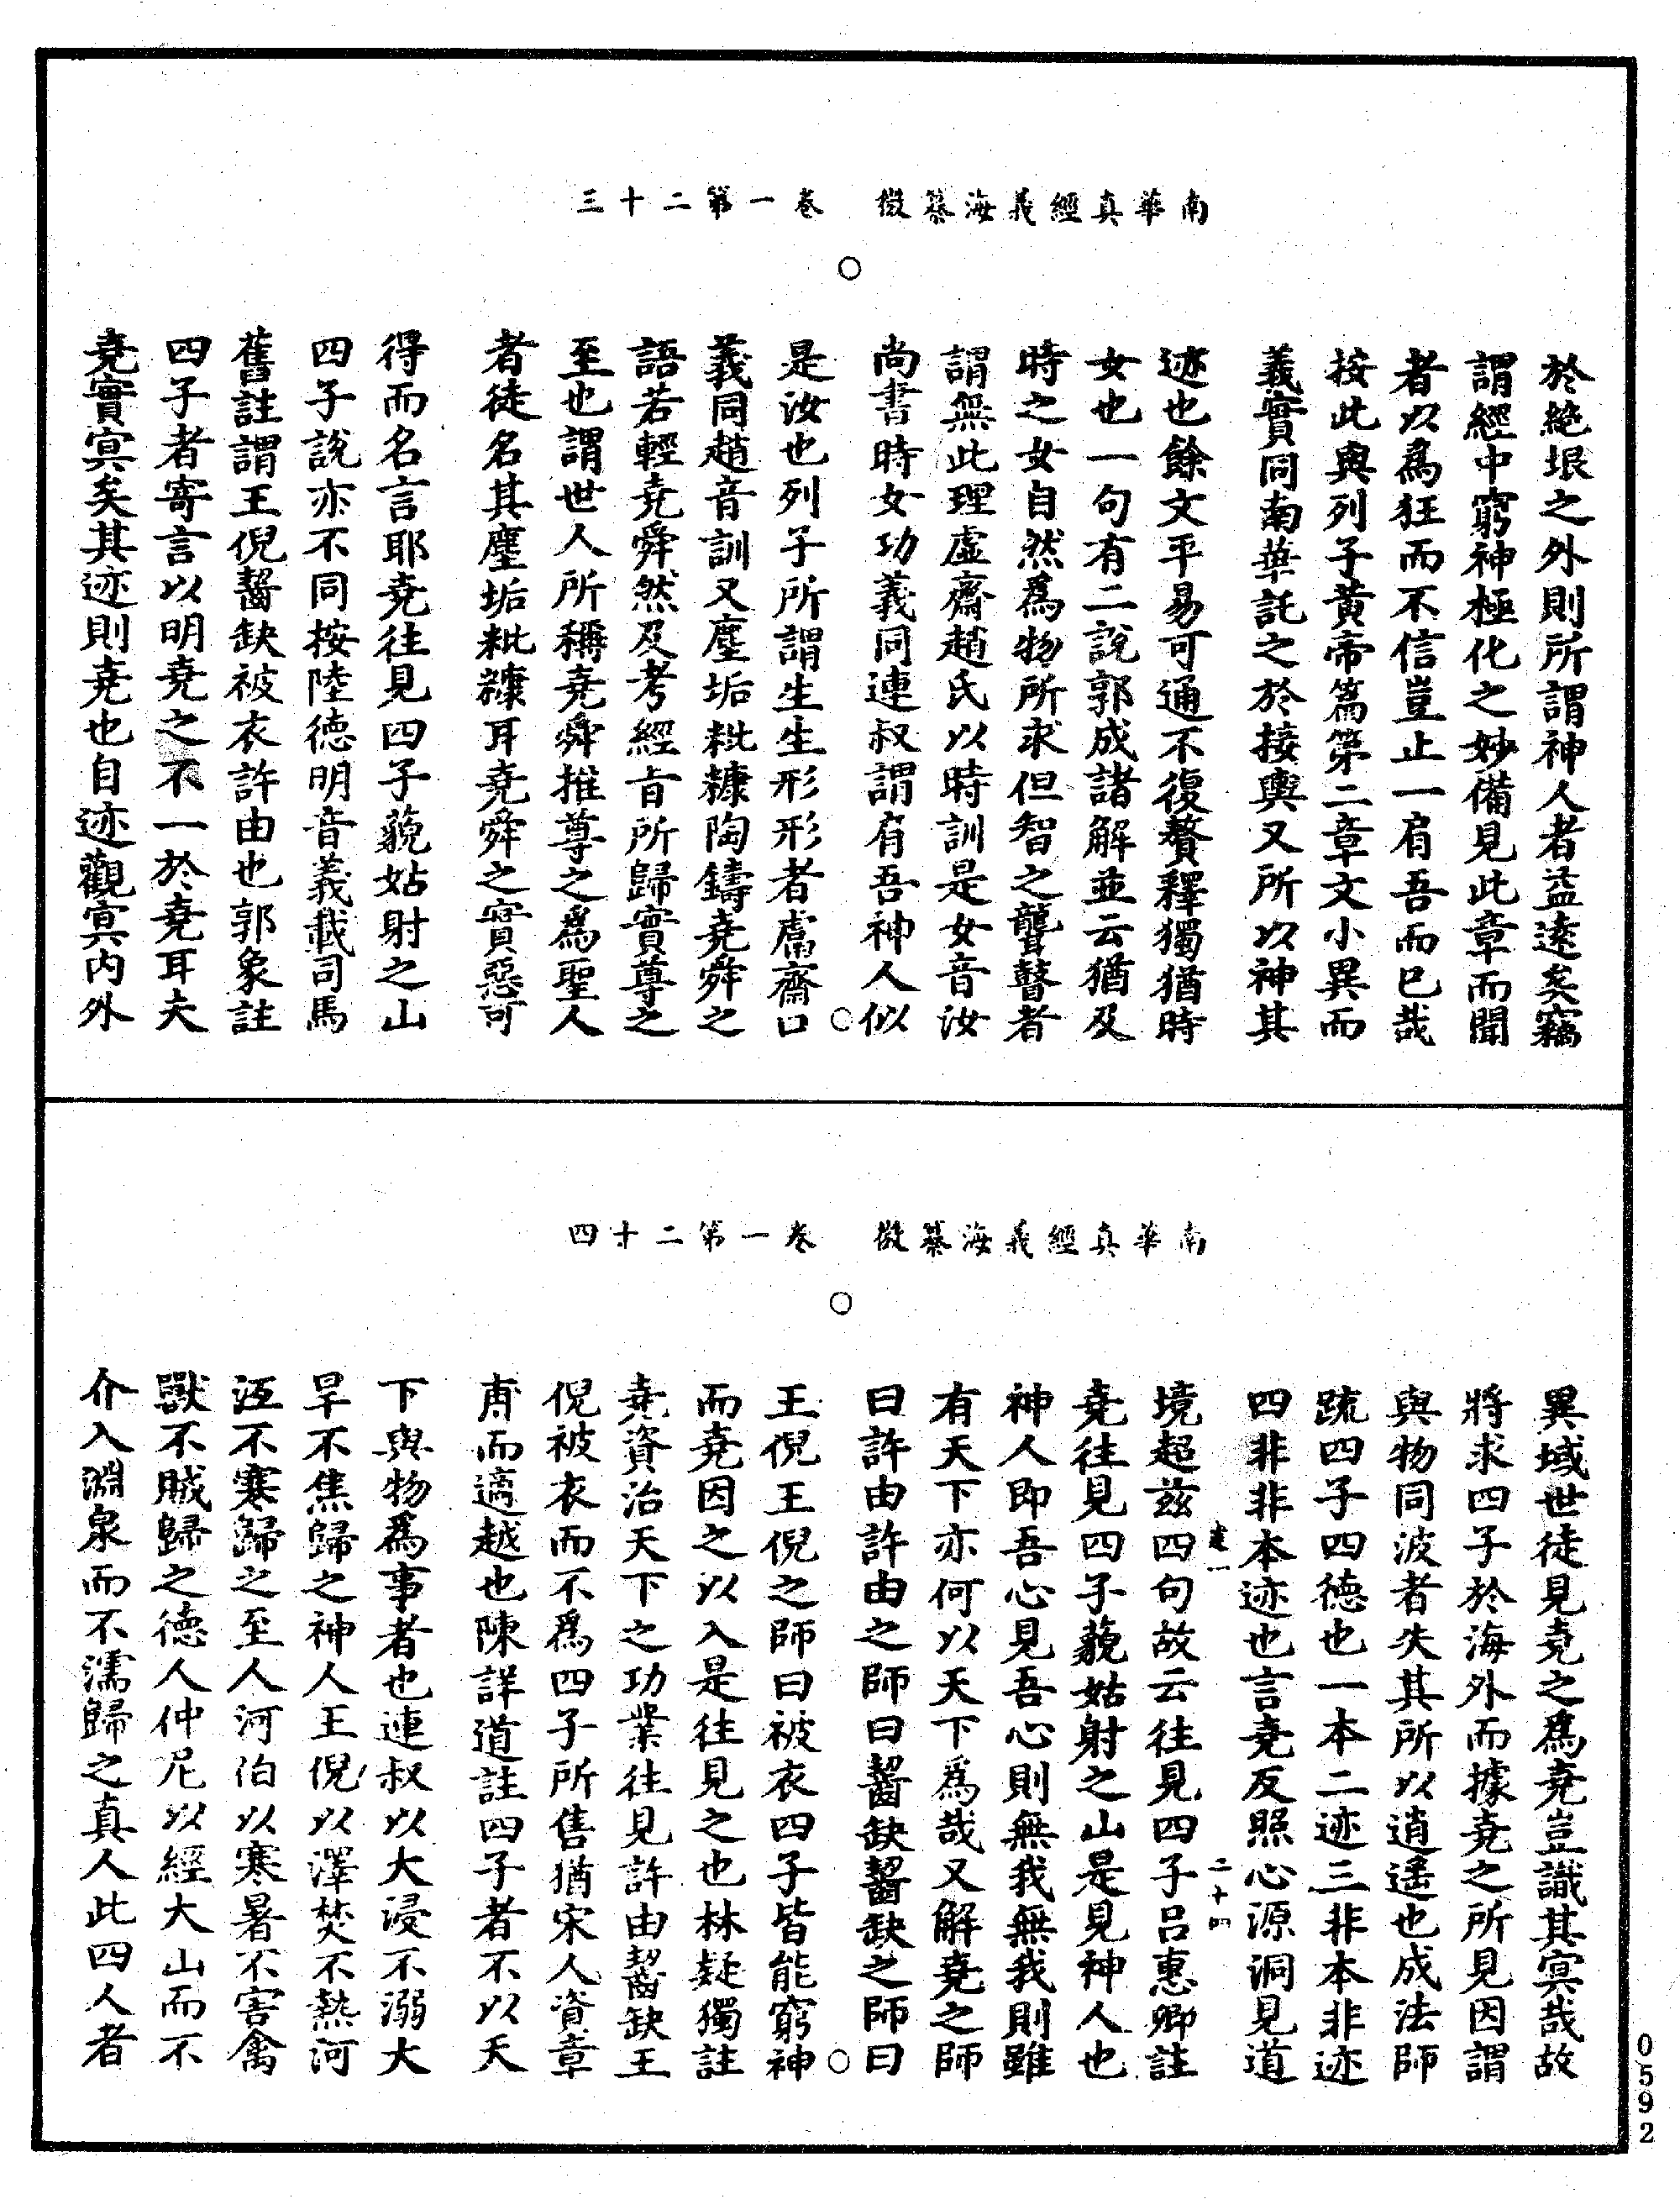 南華真經義海纂微　卷一第二十三
於絶垠之外則所謂神人者益遠矣竊
謂經中窮神極化之妙備見此章而聞
者以爲狂而不信豈止一肩吾而已哉
按此與列子黃帝篇第二章文小異而
義實同南華託之於接輿又所以神其
迹也餘文平易可通不復贅釋獨猶時
女也一句有二說郭成諸解並云猶及
時之女自然爲物所求但智之聾瞽者
謂無此理虛齋趙氏以時訓是女音汝
尚書時女功義同連叔謂肩吾神人似
是汝也列子所謂生生形形者鬳齋口
義同趙音訓又塵垢粃糠陶鑄堯舜之
語若輕堯舜然及考經旨所歸實尊之
至也謂世人所稱堯舜推尊之爲聖人
者徒名其塵垢粃糠耳堯舜之實惡可
得而名言耶堯往見四子藐姑射之山
四子說亦不同按陸德明音義載司馬
舊註謂王倪齧缺被衣許由也郭象註
四子者寄言以明堯之不一於堯耳夫
堯實冥矣其迹則堯也自迹觀冥内外
南華真經義海纂微　卷一第二十四
異域世徒見堯之爲堯豈識其冥哉故
將求四子於海外而據堯之所見因謂
與物同波者失其所以逍遙也成法師
疏四子四德也一本二迹三非本非迹
四非非本迹也言堯反照心源洞見道
建一　二十四
境超兹四句故云往見四子吕惠卿註
堯往見四子藐姑射之山是見神人也
神人即吾心見吾心則無我無我則雖
有天下亦何以天下爲哉又解堯之師
曰許由許由之師曰齧缺齧缺之師曰
王倪王倪之師曰被衣四子皆能窮神
而堯因之以入是往見之也林疑獨註
堯資治天下之功業往見許由齧缺王
倪被衣而不爲四子所售猶宋人資章
甫而適越也陳詳道註四子者不以天
下與物爲事者也連叔以大浸不溺大
旱不焦歸之神人王倪以澤焚不熱河
沍不寒歸之至人河伯以寒暑不害禽
獸不賊歸之德人仲尼以經大山而不
介入淵泉而不濡歸之真人此四人者
0592